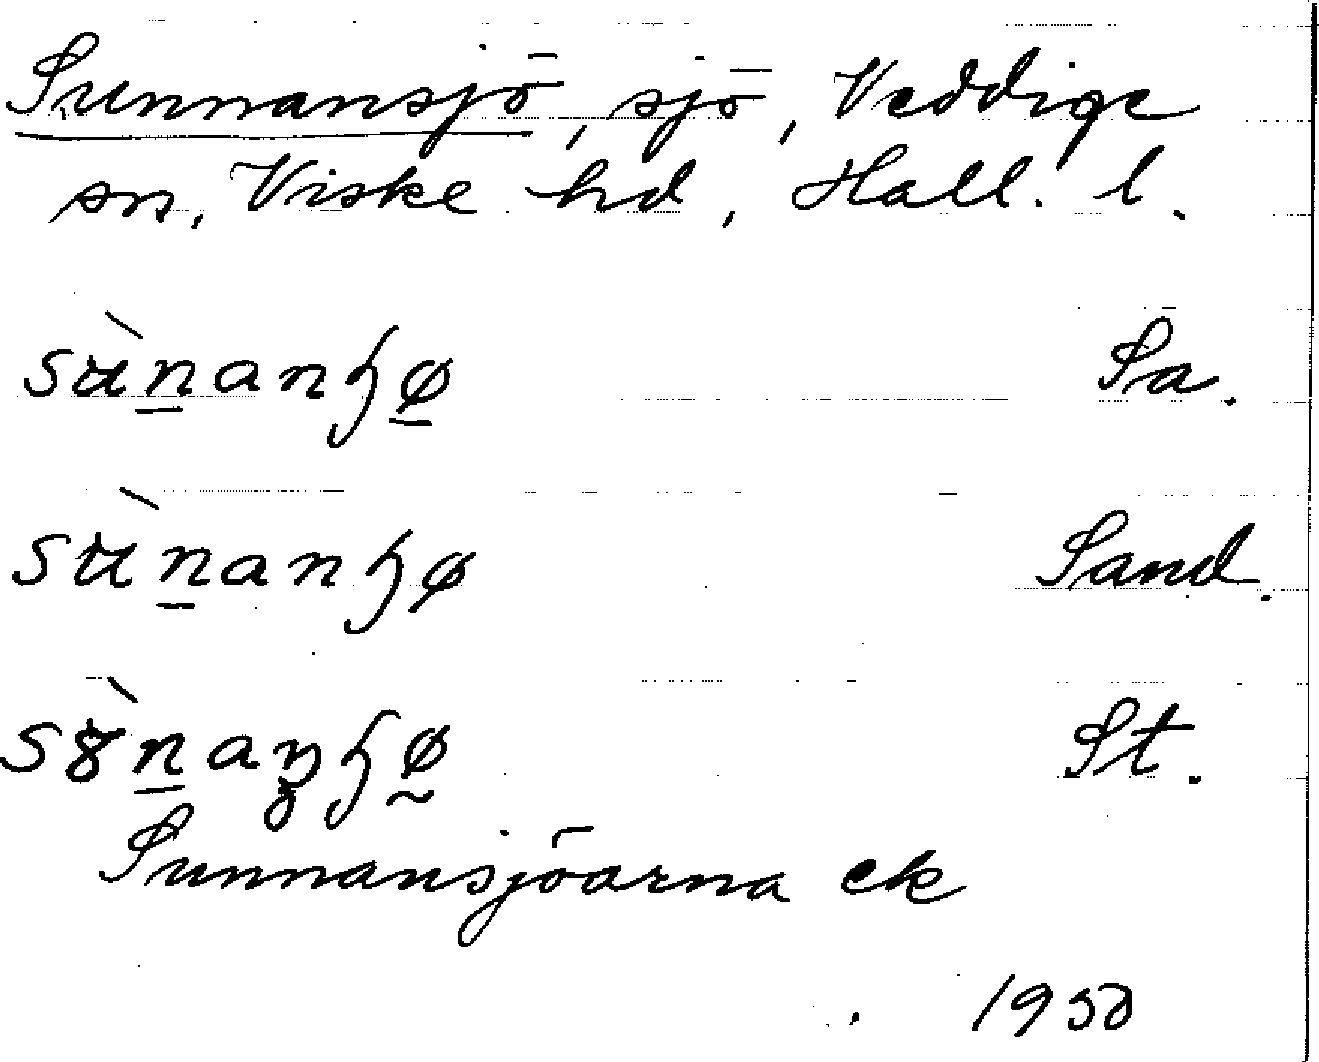 Sunnansjö, sjö, Veddige
sn, Viske hd, Hall. l.
sùn̲anɧø̲ Sa.
sùn̲anɧø Sand.
Sand.
St.
Sunnansjöarna ek
1950